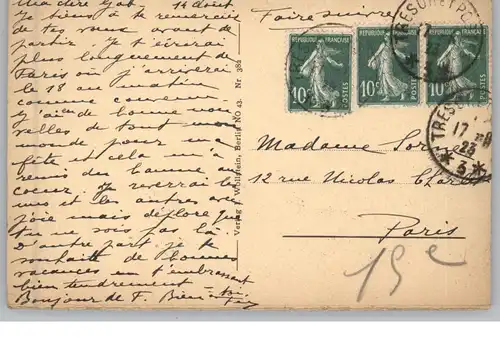 Ma chère Gab, 11 août
J'y tiens à te remercier
de tes vœux avant de
partir. Je t'écrirai
plus longuement de
Paris où j'arriverai
le 18 au matin
comme convenu
J'ai de bonnes nou
velles de tout mon
monde pour ma
fête et cela m'a
remis du baume au
cœur. Je reverrai les
uns et les autres avec
joie mais déplore que
tu ne sois pas là.
D'autre part je te
souhaite de bonnes
vacances en t'embrassant
bien tendrement
Bonjour de F. Bien à toi
Verlag J. Wollstein, Berlin NO 43. Nr. 382
Faire suivre
REPUBLIQUE FRANÇAISE
10c POSTES
REPUBLIQUE FRANÇAISE
10c POSTES
REPUBLIQUE FRANÇAISE
10 POSTES
TRESOR ET POSTES
TRESOR
17
23
* 3 *
Madame
12 rue Nicolas
Paris
19e